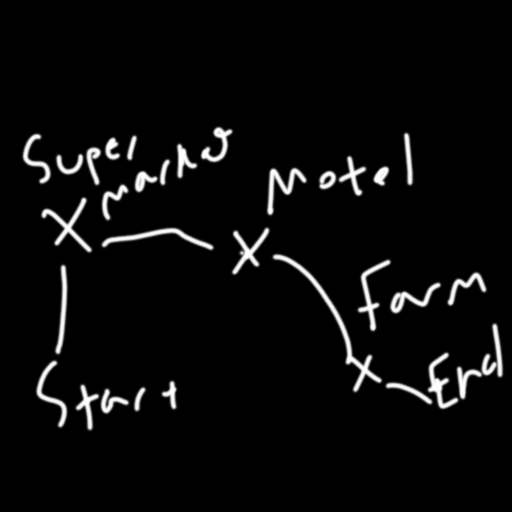 Super
market
Motel
Farm
End
Start